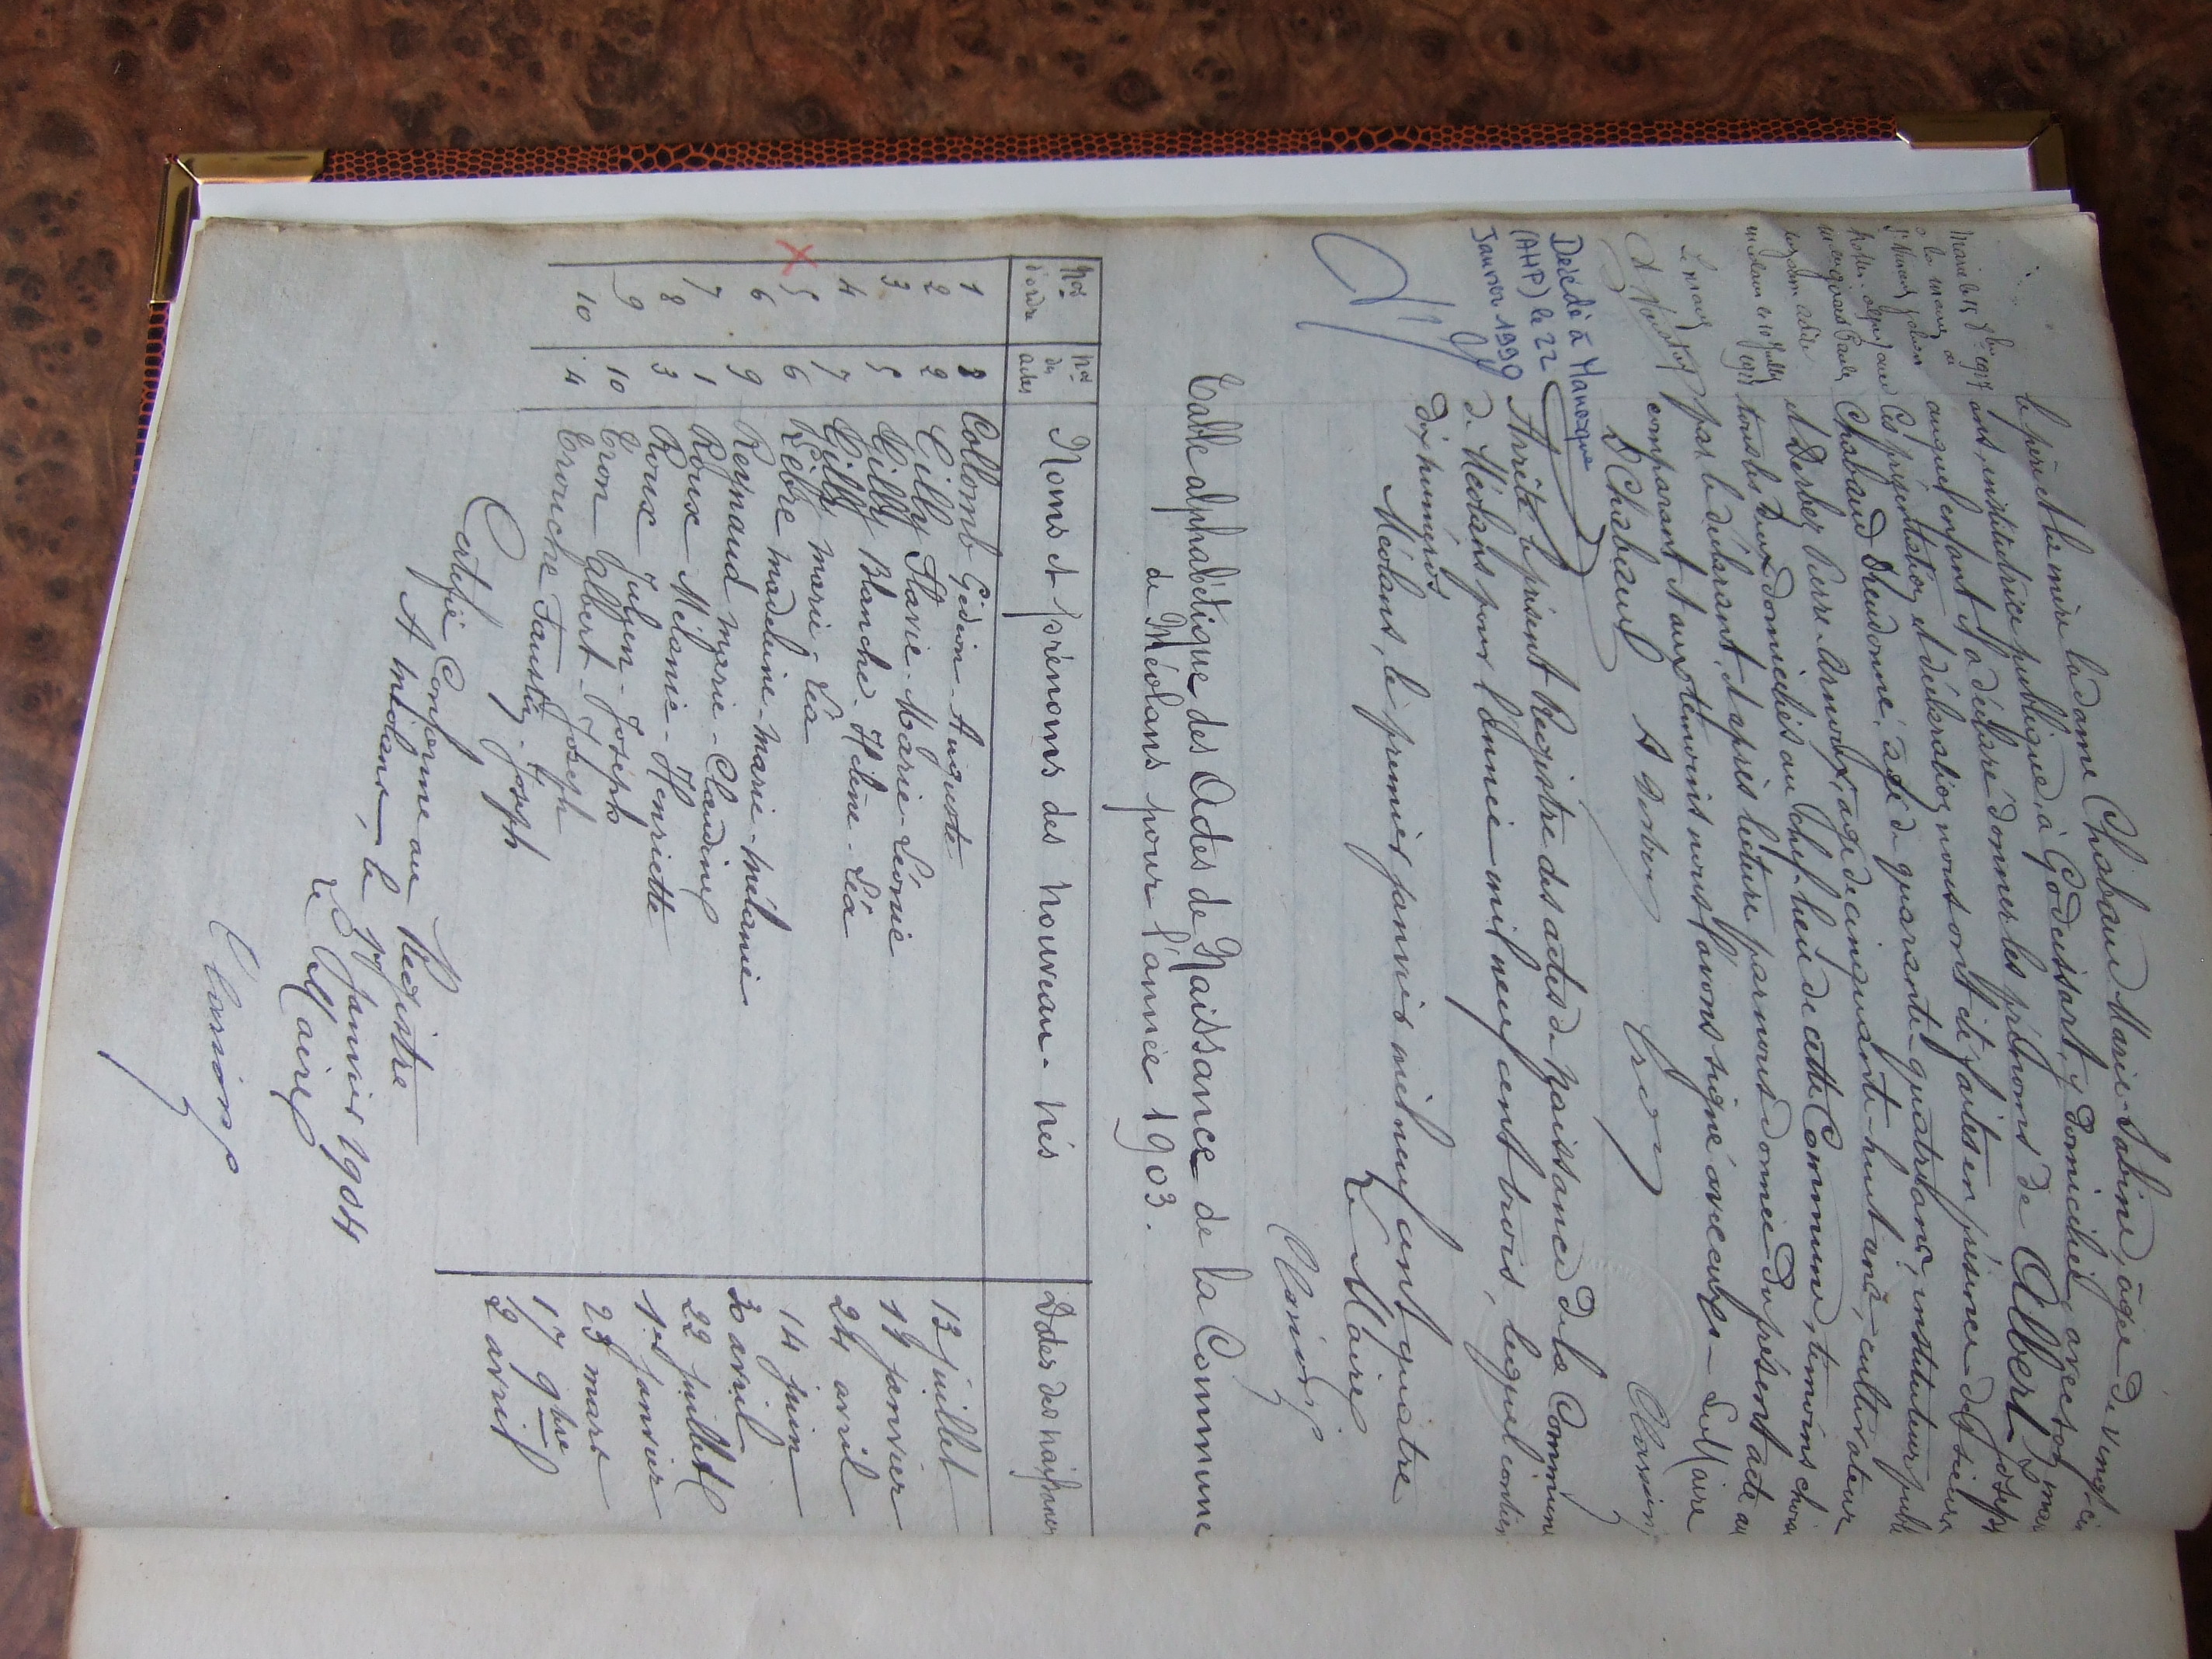 le père et la mère la dame Chabaud Marie-Sabine, âgée de vingt-ci
ans, institutrice publique, à Godeissart, y domiciliée avec son mar
auquel enfant il a déclaré donner les prénoms de Albert Joseph
Ces présentation et déclaration nous ont été faites en présence des sieurs
Chabaud Dieudonné, âgé de quarante-quatre ans, instituteur publ
et Derbez Pierre Arnoux, âgé de cinquante-huit ans, cultivateur
tous les deux domiciliés au chef-lieu de cette Commune, témoins choisi
par le déclarant, et après lecture par nous donnée du présent acte au
comparant et aux témoins nous l'avons signé avec eux. Le Maire
D Chabaud A Derbez Tron
Marié le
1927
à la mairie de
St Vincent
Le maire
Décédé à Manosque
(AHP) le 22
Janvier 1990
Arrêté le présent Registre des actes de naissance de la Commune
de Méolans pour l'année mil neuf cent trois, lequel contien
dix numéros
Méolans, le premier janvier mil neuf cent quatre
Le Maire
Table alphabétique des Actes de Naissance de la Commune
de Méolans pour l'année 1903.
Nos d'ordre Nos des actes Noms et prénoms des nouveau-nés Dates des naissances
1 8 Collomb Gédéon-Auguste 13 juillet
2 2 Gilly Flavie-Marie-Léonie 14 janvier
3 5 Gilly Blanche-Hélène-Léa 24 avril
4 7 Gilly Marie-Léa 14 juin
5 6 Lèbre Madeleine-Marie-Mélanie 30 avril
6 9 Reynaud Marie-Claudine 22 juillet
7 1 Roux Mélanie-Henriette 1er janvier
8 3 Roux Julien-Joseph 23 mars
9 10 Tron Albert-Joseph 17 9bre
10 4 Trouche Faustin-Joseph 2 avril
Certifié Conforme au Registre
A Méolans, le 1er janvier 1904
Le Maire